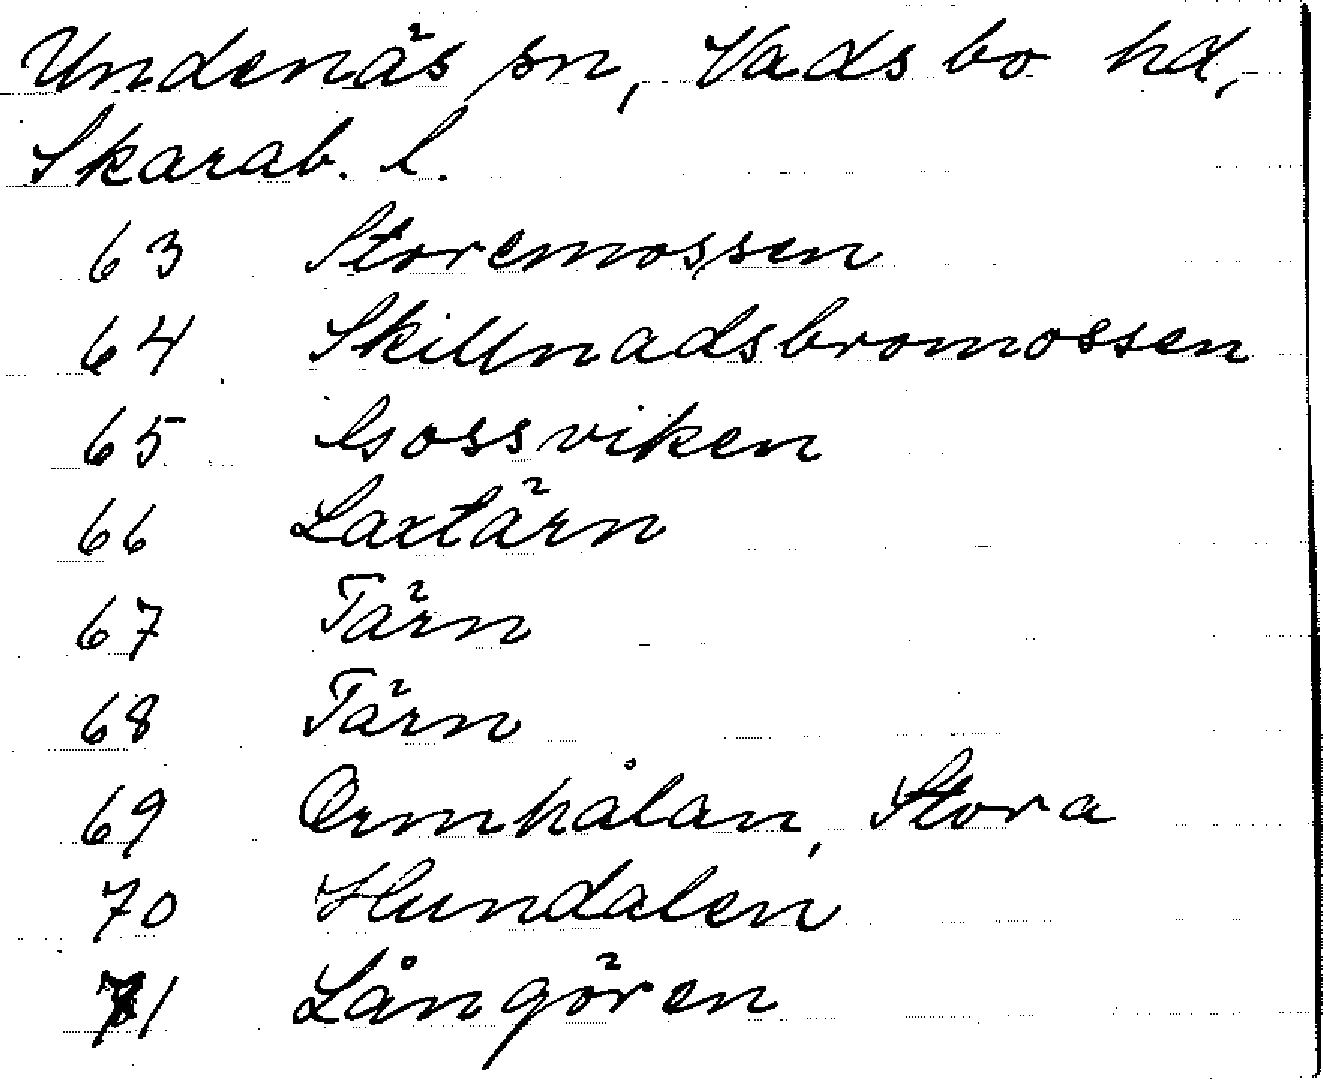 Undenäs sn, Vadsbo hd,
Skarab. l.
63 Storemossen
64 Skillnadsbromossen
65 Gossviken
66 Laxtärn
67 Tärn
68 Tärn
69 Ormhålan, Stora
70 Hundalen
71 Långören